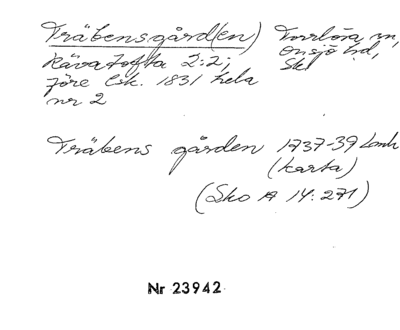 Träbensgård(en) Torrlösa sn,
Rävatofta 2:2; Onsjö hd,
före lsk. 1831 hela Skl
nr 2
Träbens gården 1737-39 Lmk
(karta)
(Sko A 14:271)
Nr 23942